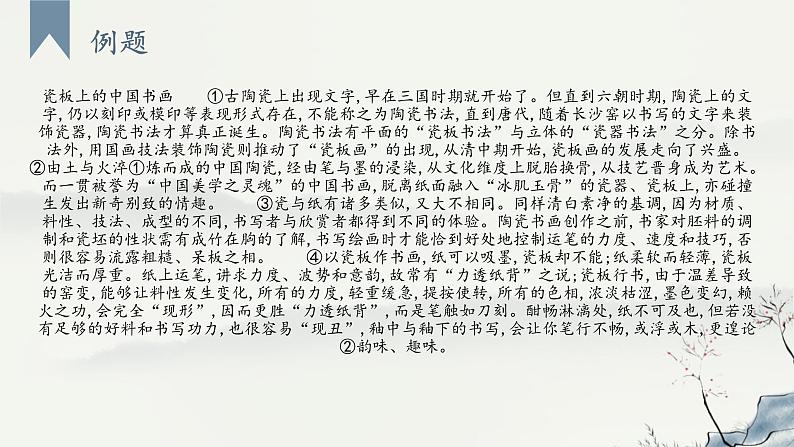 例题
瓷板上的中国书画 ①古陶瓷上出现文字,早在三国时期就开始了。但直到六朝时期,陶瓷上的文
字,仍以刻印或模印等表现形式存在,不能称之为陶瓷书法,直到唐代,随着长沙窑以书写的文字来装
饰瓷器,陶瓷书法才算真正诞生。陶瓷书法有平面的“瓷板书法”与立体的“瓷器书法”之分。除书
法外,用国画技法装饰陶瓷则推动了“瓷板画”的出现,从清中期开始,瓷板画的发展走向了兴盛。
②由土与火淬①炼而成的中国陶瓷,经由笔与墨的浸染,从文化维度上脱胎换骨,从技艺晋身成为艺术。
而一贯被誉为“中国美学之灵魂”的中国书画,脱离纸面融入“冰肌玉骨”的瓷器、瓷板上,亦碰撞
生发出新奇别致的情趣。 ③瓷与纸有诸多类似,又大不相同。同样清白素净的基调,因为材质、
料性、技法、成型的不同,书写者与欣赏者都得到不同的体验。陶瓷书画创作之前,书家对胚料的调
制和瓷坯的性状需有成竹在胸的了解,书写绘画时才能恰到好处地控制运笔的力度、速度和技巧,否
则很容易流露粗糙、呆板之相。 ④以瓷板作书画,纸可以吸墨,瓷板却不能;纸柔软而轻薄,瓷板
光洁而厚重。纸上运笔,讲求力度、波势和意韵,故常有“力透纸背”之说;瓷板行书,由于温差导致
的窑变,能够让料性发生变化,所有的力度,轻重缓急,提按使转,所有的色相,浓淡枯涩,墨色变幻,赖
火之功,会完全“现形”,因而更胜“力透纸背”,而是笔触如刀刻。酣畅淋漓处,纸不可及也,但若没
有足够的好料和书写功力,也很容易“现丑”,釉中与釉下的书写,会让你笔行不畅,或浮或木,更遑论
②韵味、趣味。